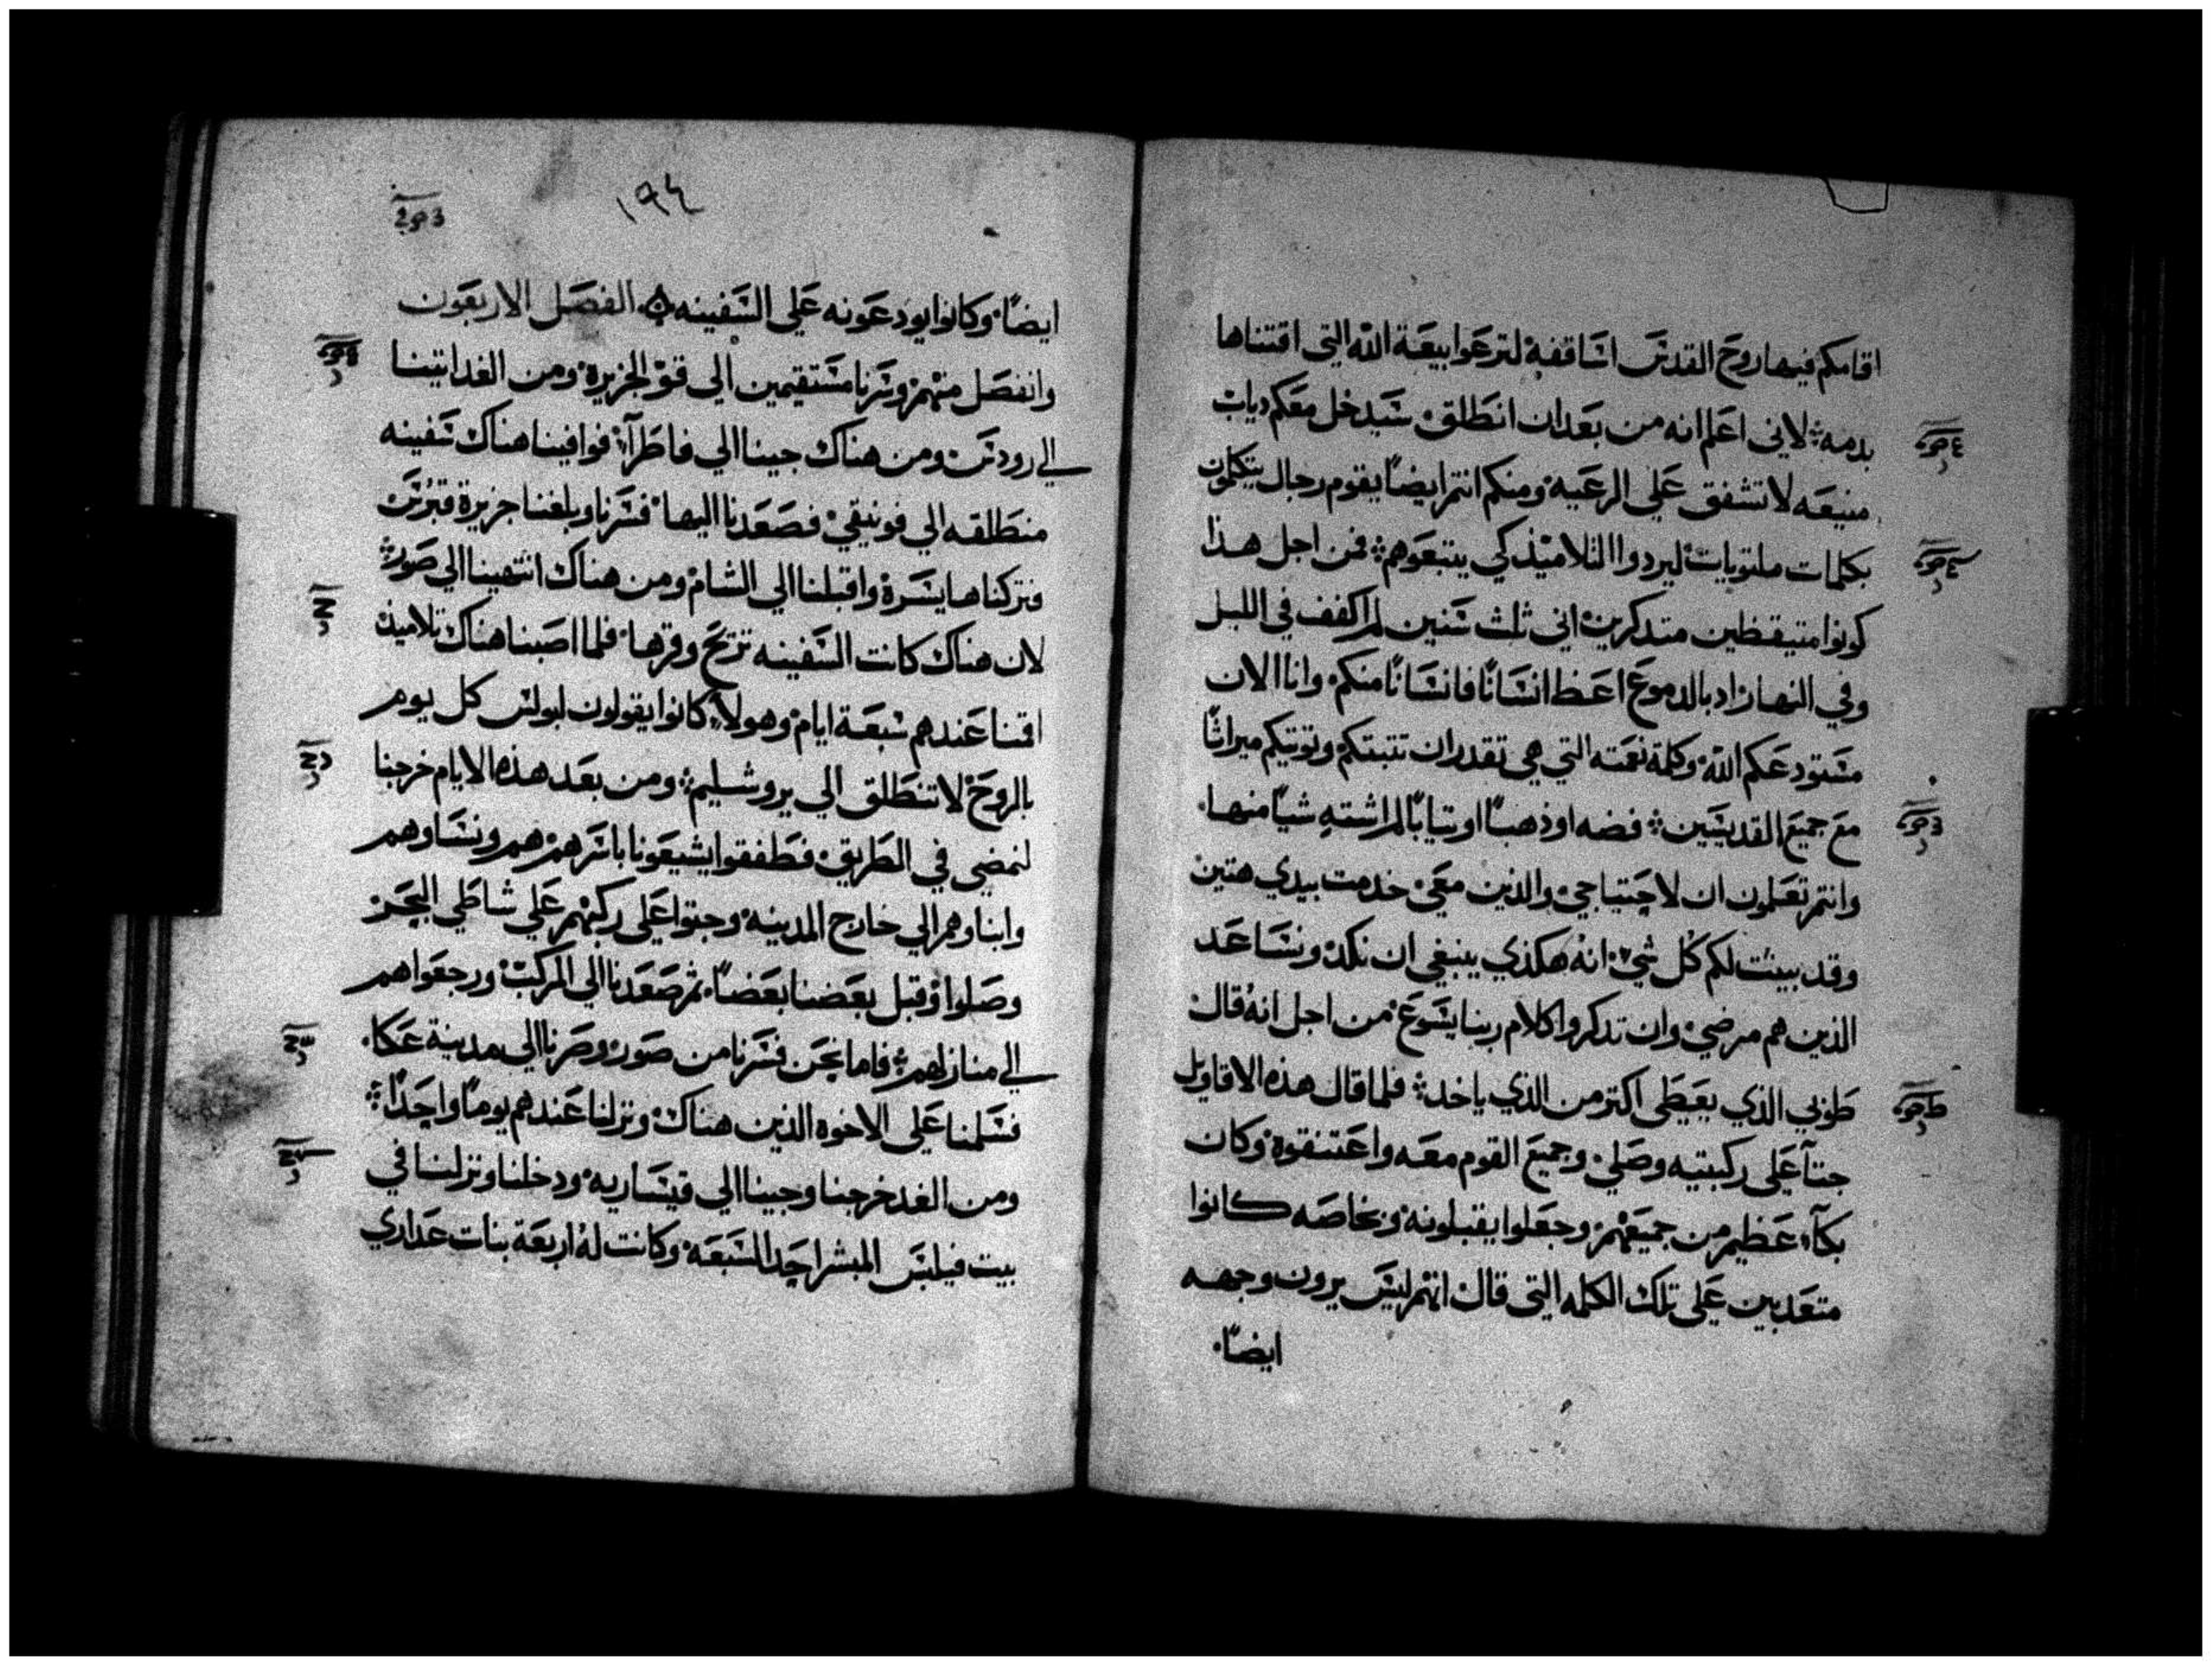 اقامكم فيها روح القدس اساقفه لترعوا بيعة الله التي اقتناها
بدمه لاني اعلم انه من بعد ان انطلق سيدخل معكم دياب
منيعه لا تشفق علي الرعيه ومنكم انتم ايضًا يقوم رجال يتكلمون
بكلمات ملتويات ليردوا التلاميذ كي يتبعوهم فمن اجل هذا
كونوا متيقظين متدكرين اني ثلث سنين لم اكفف في الليل
وفي النهار اد بالدموع اعظ انسانًا فانسانًا منكم وانا الان
مستودعكم الله وكلمة نعمته التي هي تقدر ان تتبتكم وتوتيكم ميراثًا
مع جميع القديسين فضه او ذهبًا او تيابًا لم اشته شيًا منها
وانتم تعلمون ان لاحتياجي والذين معي خدمت بيدي هتين
وقد بينت لكم كل شي انه هكذي ينبغي ان نكد ونساعد
الذين هم مرضي وان تدكروا كلام ربنا يسوع من اجل انه قال
طوبي الذي يعطي اكتر من الذي ياخد فلما قال هذه الاقاويل
جتا علي ركبتيه وصلي وجميع القوم معه واعتنقوه وكان
بكآء عظيم من جميعهم وجعلوا يقبلونه وبخاصه كانوا
متعدبين علي تلك الكلمه التي قال انهم ليس يرون وجهه
ايضًا
١٩٤
ايضًا وكانوا يودعونه علي السفينه الفصل الاربعون
وانفصل منهم وسرنا مستقيمين الي قو الجزيرة ومن الغد اتينا
الي رودس ومن هناك جينا الي فاطرآ فوافينا هناك سفينه
منطلقه الي فونيقي فصعدنا اليها فسرنا وبلغنا جزيرة قبرس
فتركناها يسرة واقبلنا الي الشام ومن هناك انتهينا الي صور
لان هناك كانت السفينه تريح وقرها فلما اصبنا هناك تلاميذ
اقمنا عندهم سبعة ايام وهولاء كانوا يقولون لبولس كل يوم
بالروح لا تنطلق الي يروشليم ومن بعد هذه الايام خرجنا
لنمضي في الطريق فطفقوا يشيعونا باسرهم هم ونساوهم
وابناوهم الي خارج المدينه وجتوا علي ركبهم علي شاطي البحر
وصلوا وقبل بعضنا بعضًا ثم صعدنا الي المركب ورجعوا هم
الي منازلهم فاما نحن فسرنا من صور وصرنا الي مدينة عكا
فسلمنا علي الاخوه الذين هناك ونزلنا عندهم يومًا واحدًا
ومن الغد خرجنا وجينا الي قيساريه ودخلنا ونزلنا في
بيت فيلبس المبشر احد السبعه وكانت له اربعة بنات عداري